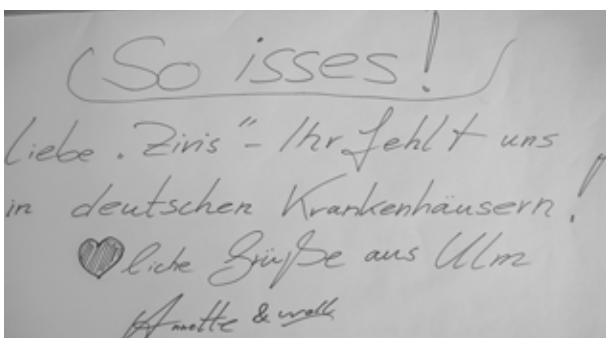 So isses!
Liebe „Zivis“ - Ihr fehlt uns
in deutschen Krankenhäusern!
♥liche Grüße aus Ulm
Annette &